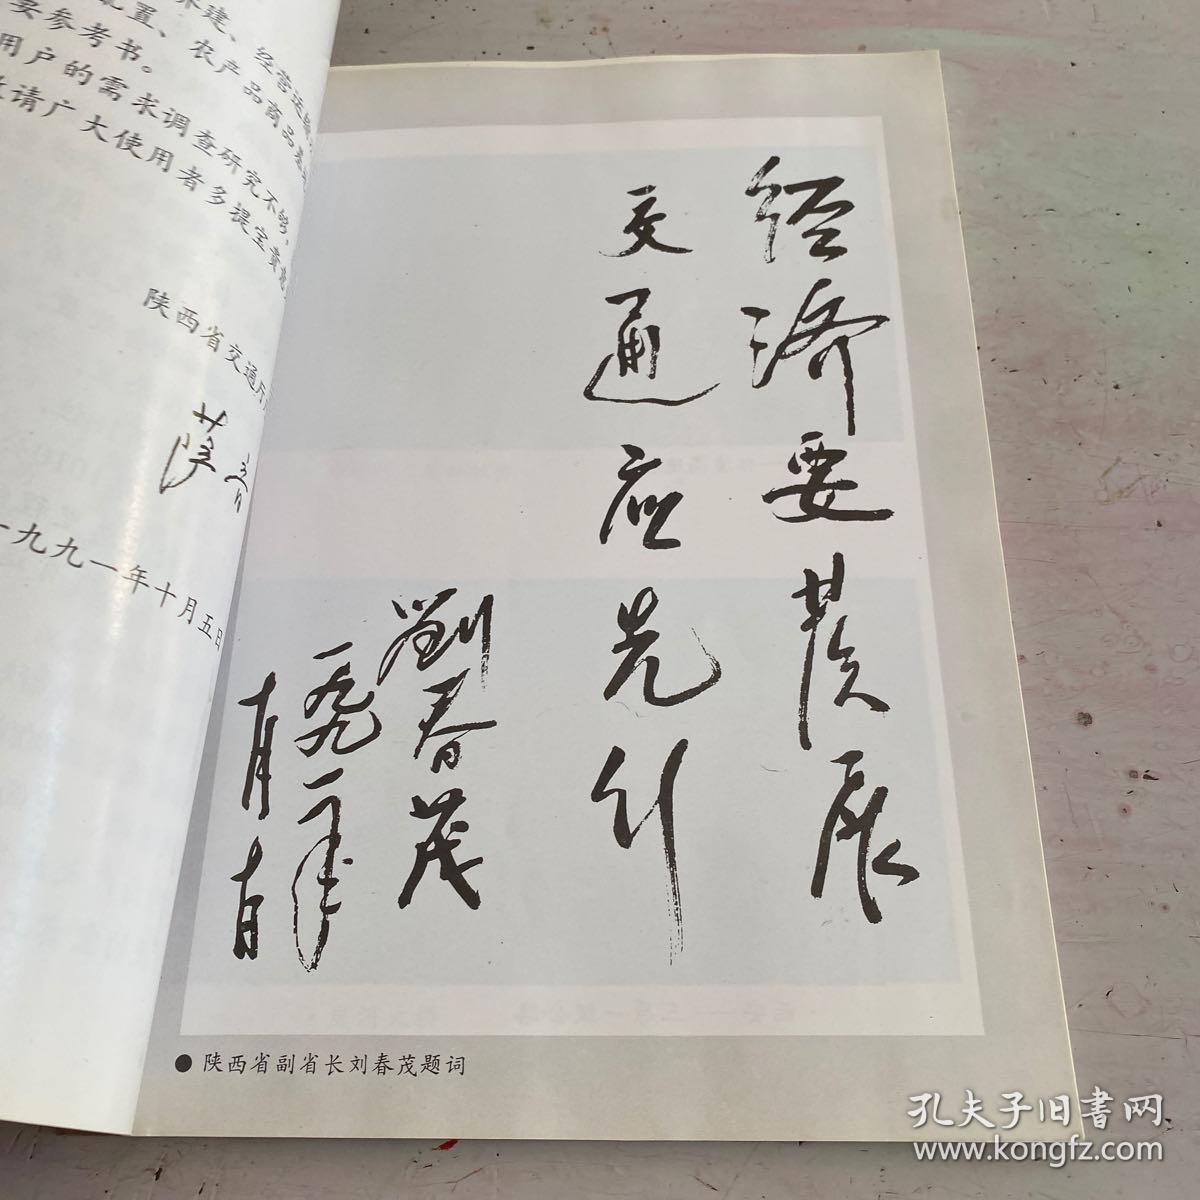 建、经营运输
置、农产品商品基
要参考书。
用户的需求调查研究不够,
请广大使用者多提宝贵
陕西省交通厅
一九九一年十月五日
经济要发展
交通应先行
劉春茂
一九九一年
十月
十日
● 陕西省副省长刘春茂题词
孔夫子旧书网
www.kongfz.com